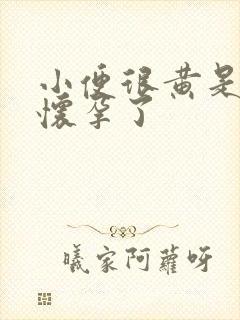 小便很黄是
懷孕了
曦家阿蘿呀